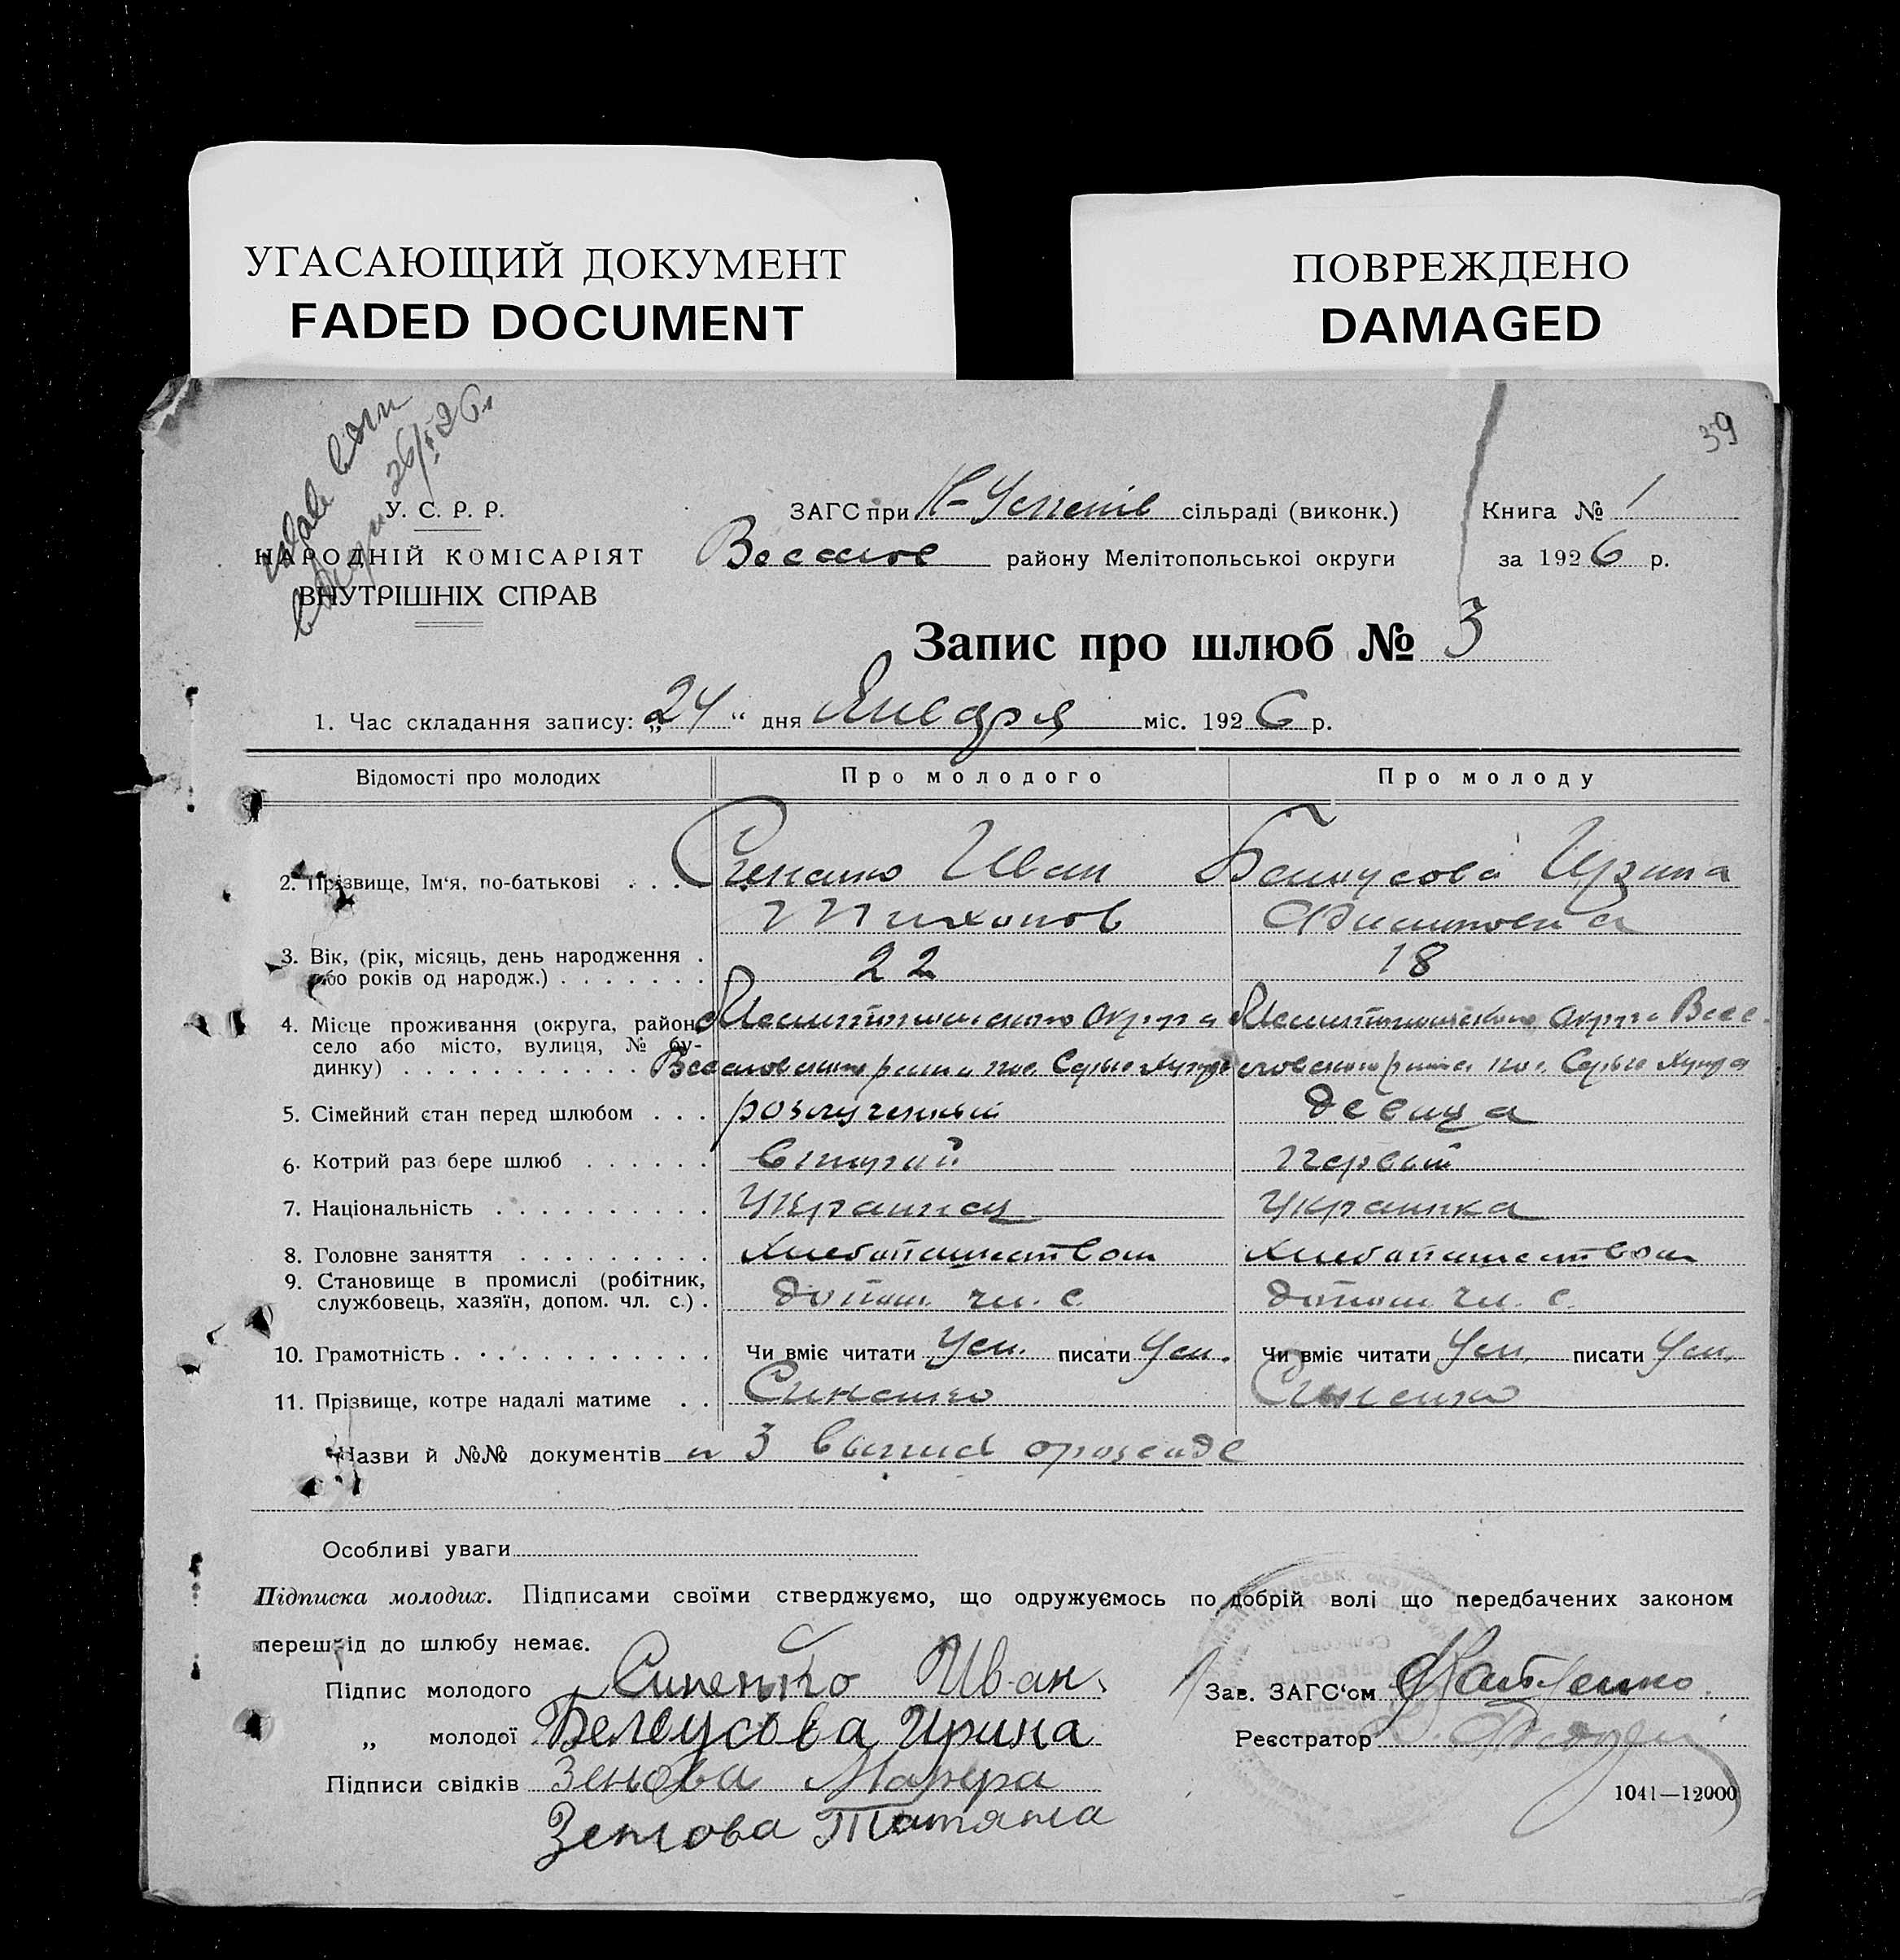 УГАСАЮЩИЙ ДОКУМЕНТ
FADED DOCUMENT
ПОВРЕЖДЕНО
DAMAGED
39
У. С. Р. Р.
НАРОДНІЙ КОМІСАРІЯТ
ВНУТРІШНІХ СПРАВ
ЗАГС при сільраді (виконк.)
Веселов району Мелітопольської округи
Книга № 1
за 1926 р.
Запис про шлюб № 3
1. Час складання запису: „24“ дня Января міс. 1926 р.
Відомості про молодих Про молодого Про молоду
2. Прізвище, Ім'я, по-батькові . . . Иван Ирина
Тихонов Филиповна
3. Вік, (рік, місяць, день народження .
або років од народж.) . . . . . . . 22 18
4. Місце проживання (округа, район, Мелитопольского Округа Мелитопольского Округа Весе-
село або місто, вулиця, № бу-
динку) . . . . . . . . . . . Веселовского района пос. ловского района пос.
5. Сімейний стан перед шлюбом . . . розлученный девица
6. Котрий раз бере шлюб . . . . . . второй первый
7. Національність . . . . . . . . . . Украинец Украинка
8. Головне заняття . . . . . . . . . Хлебопашеством Хлебопашеством
9. Становище в промислі (робітник,
службовець, хазяїн, допом. чл. с.) . допом. чл. с. допом. чл. с.
10. Грамотність . . . . . . . . . . . Чи вміє читати Ум. писати Ум. Чи вміє читати Ум. писати Ум.
11. Прізвище, котре надалі матиме . . Синенко Синенко
Назви й №№ документів № 3 выпись о розводе
Особливі уваги
Підписка молодих. Підписами своїми стверджуємо, що одружуємось по добрій волі що передбачених законом
перешкід до шлюбу немає.
Підпис молодого Синенко Иван.
„ молодої Белоусова Ирина
Підписи свідків Зенова
Зенова Татяна
Зав. ЗАГС'ом
Реєстратор
1041—12000